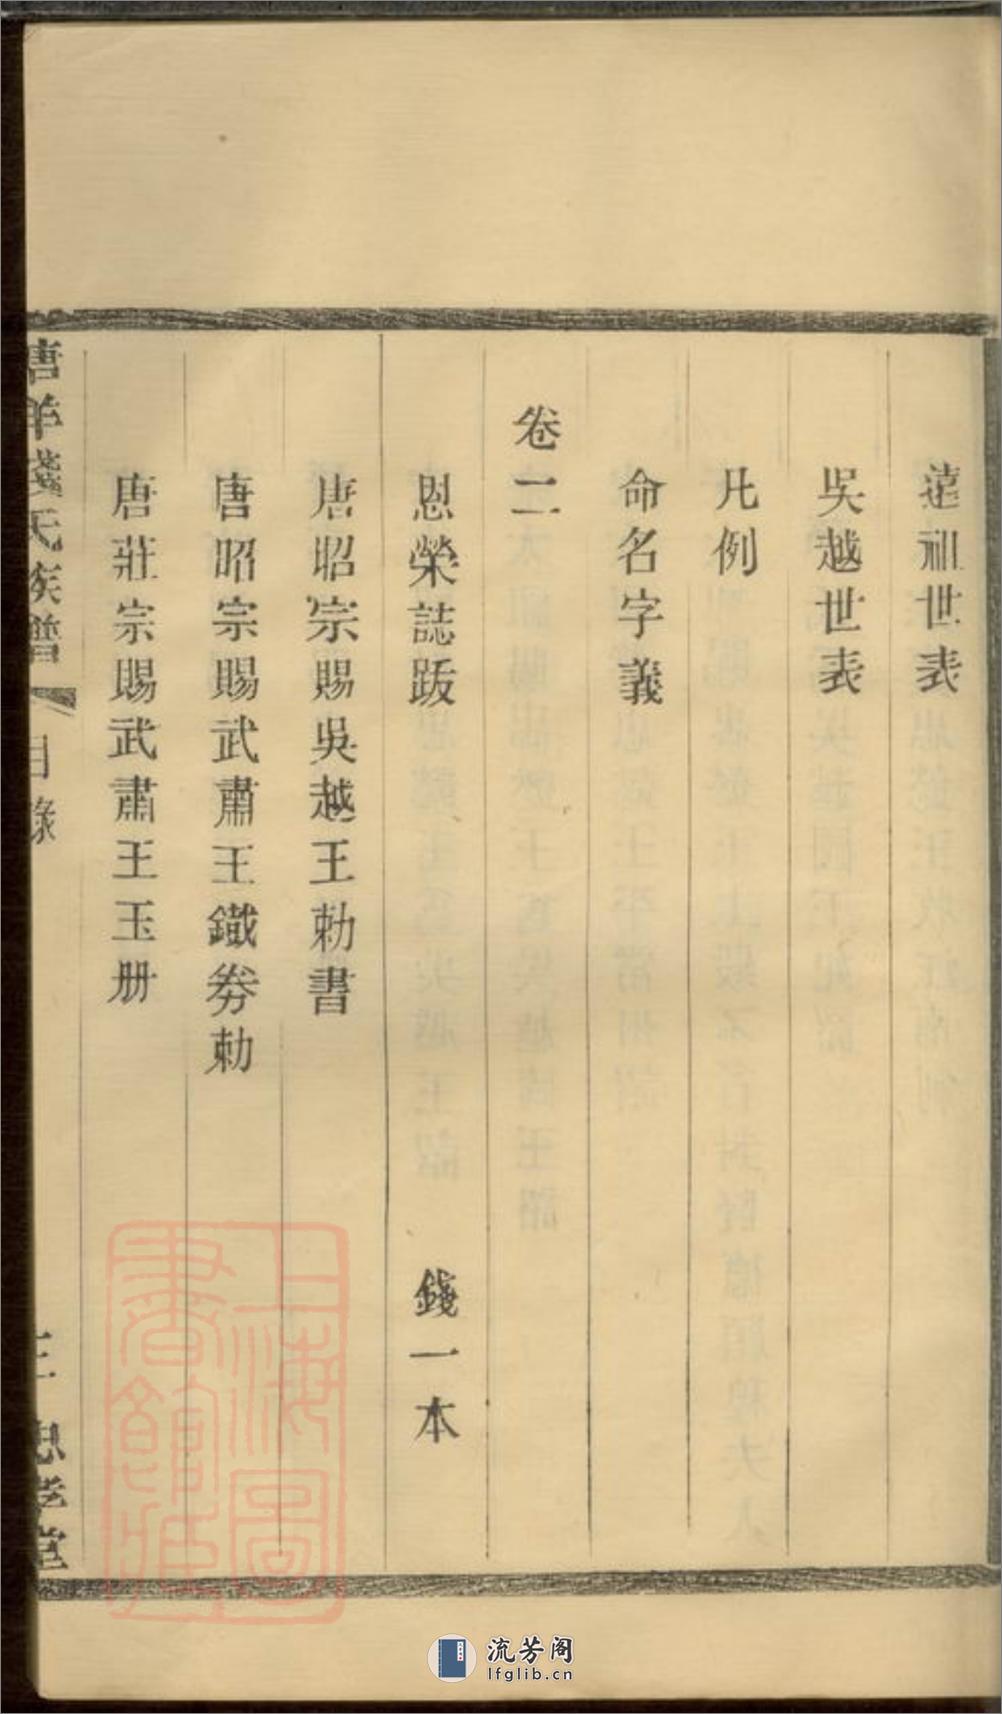 遠祖世表
吳越世表
凡例
命名字義
卷二
恩榮誌跋 錢一本
唐昭宗賜吳越王勅書
唐昭宗賜武肅王鐵劵勅
唐莊宗賜武肅王玉册
唐羊錢氏族譜 目錄 三 忠孝堂
上海圖書館藏
流芳阁
lfglib.cn